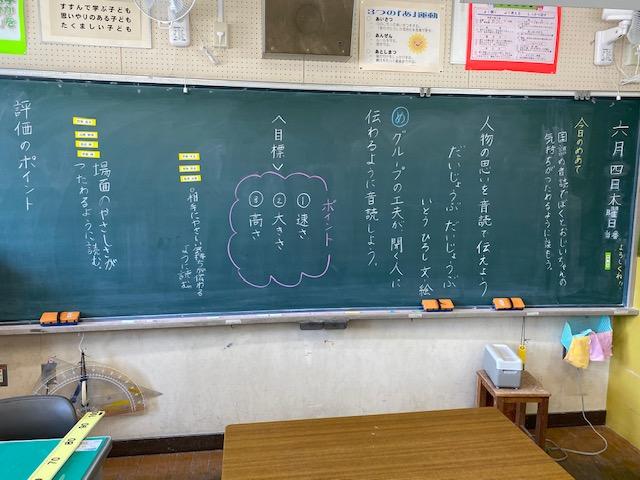 すすんで学ぶ子ども
思いやりのある子ども
たくましい子ども
3つの「あ」運動
あいさつ
あんぜん
あとしまつ
六月四日木曜日
今日のめあて
国語の音読でぼくとおじいちゃんの
気持ちがつたわるようにはもう。
人物の思いを音読で伝えよう
だいじょうぶ だいじょうぶ
いとう ひろし 文 絵
め グループの工夫が、聞く人に
伝わるように音読しよう。
〈目標〉
ポイント
①速さ
②大きさ
③高さ
○相手にやさしい気持ちが伝わる
ように読む
場面のやさしさが
つたわるように読む。
評価のポイント